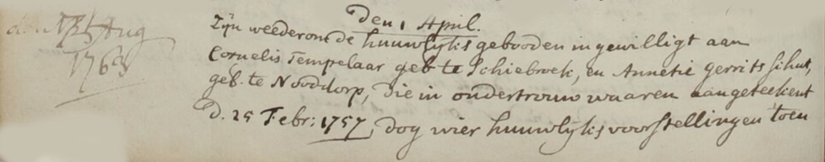 den 1 April.
Zijn weederom de huuwlijks gebooden ingewilligt aan
Cornelis Tempelaar geb te Schiebroek, en Annetie gerrits
geb. te Nooddorp, die in ondertrouw waaren aangeteekent
d. 25 Febr: 1757, dog wier huuwlijks voorstellingen toen
Aug
1763